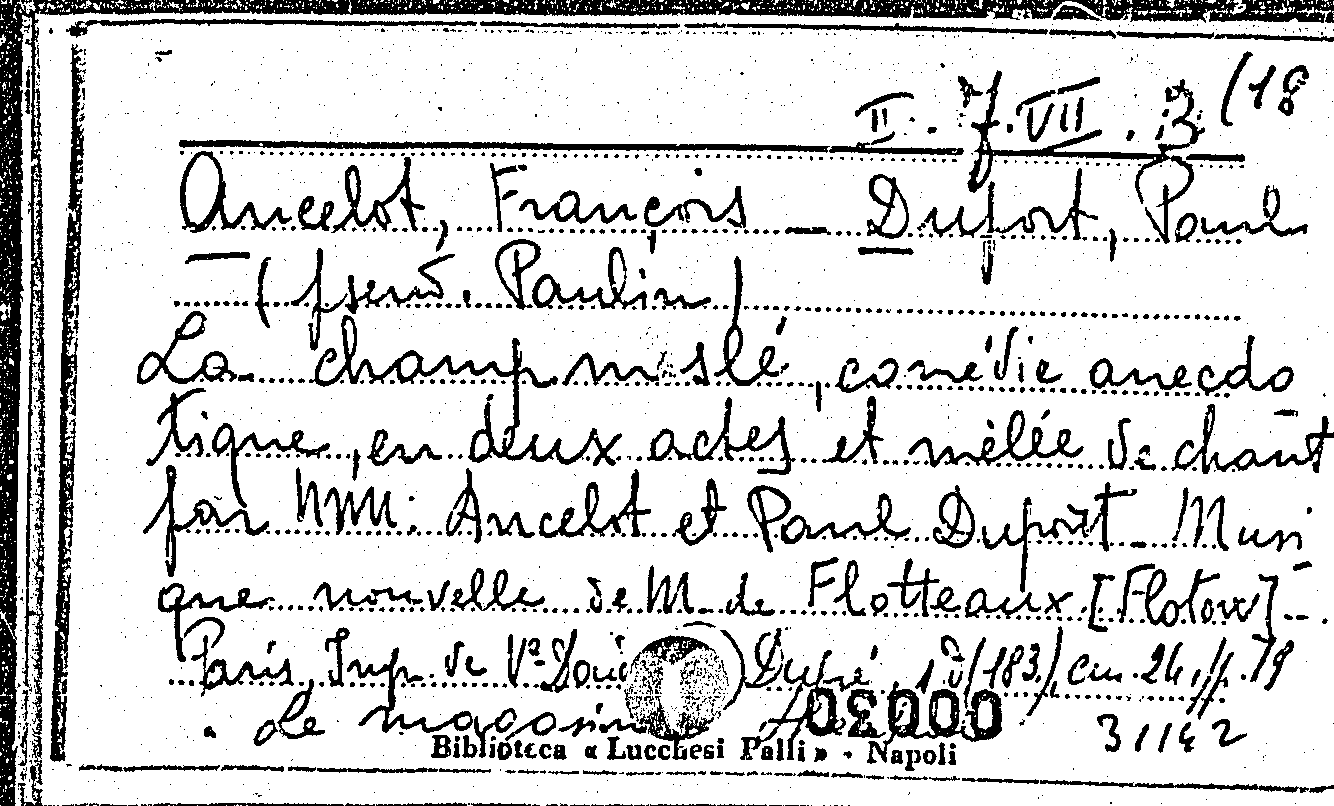 II. 7. VII. 3 (18
Ancelot, François - Dufort, Paul
(pseud. Paulin)
La champmeslé, comédie anecdo
tique, en deux actes et mêlée de chant
par MM. Ancelot et Paul Duport - Musi
que nouvelle de M. de Flotteaux [Flotow] -
Paris, Imp. de Vª Dondey Dupré, cm. 24, pp. 19
. Le magasin 31142
00030
Biblioteca « Lucchesi Palli » - Napoli